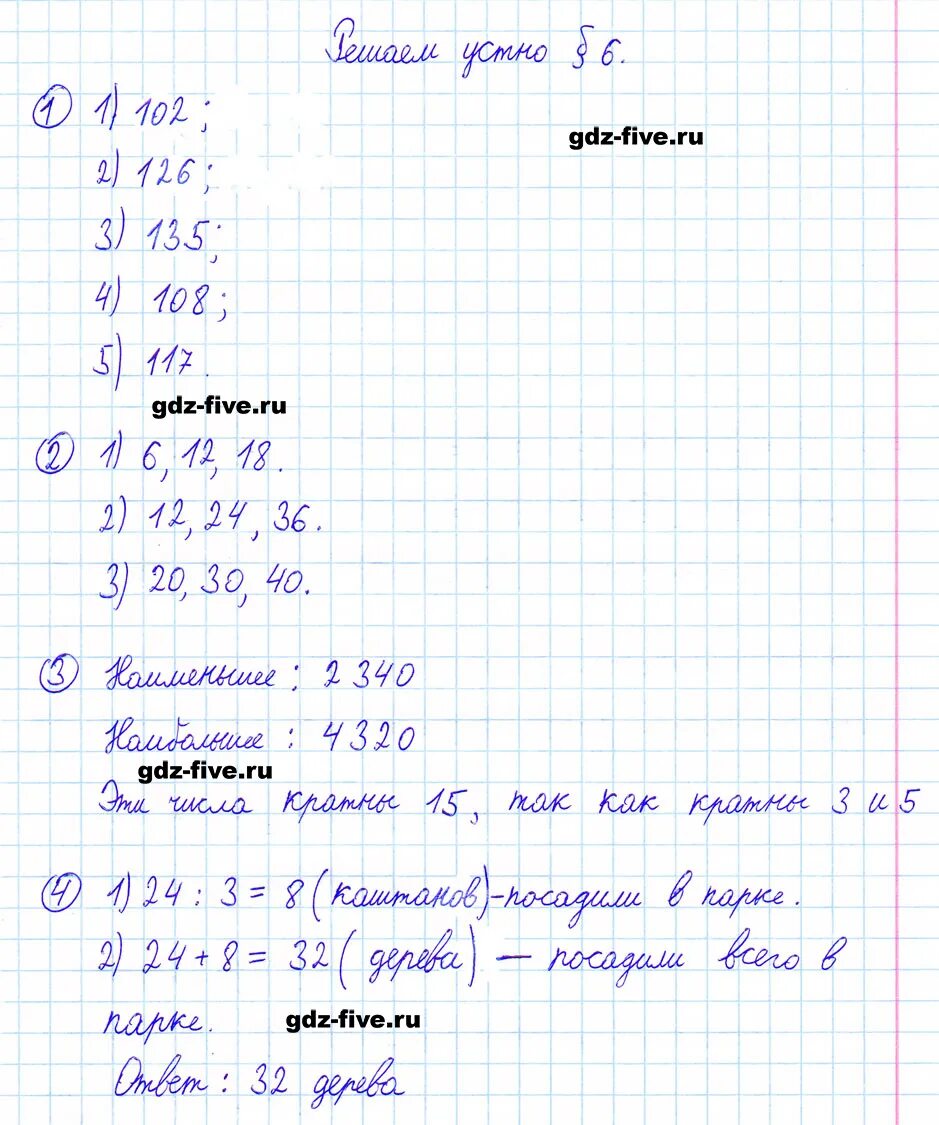 Решаем устно § 6.
① 1) 102;
gdz-five.ru
2) 126;
3) 135;
4) 108;
5) 117.
gdz-five.ru
② 1) 6, 12, 18.
2) 12, 24, 36.
3) 20, 30, 40.
③ Наименьшее : 2 340
Наибольшее : 4320
gdz-five.ru
Эти числа кратны 15, так как кратны 3 и 5
④ 1) 24 : 3 = 8 (каштанов)-посадили в парке.
2) 24 + 8 = 32 ( дерева) — посадили всего в
парке.
gdz-five.ru
Ответ : 32 дерева